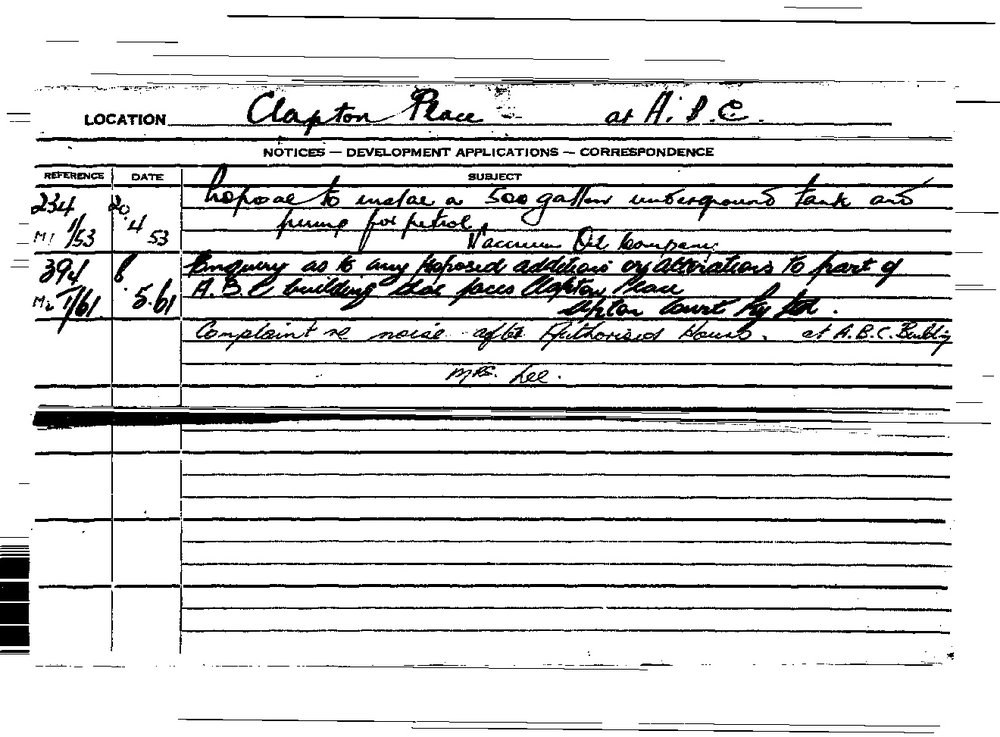 LOCATION Clapton Place - at A.B.C.
NOTICES — DEVELOPMENT APPLICATIONS — CORRESPONDENCE
REFERENCE DATE SUBJECT
234 20. Proposal to install a 500 gallon underground tank and
M1 1/53 4 53 pump for petrol.
Vacuum Oil Company.
394 8 Enquiry as to any proposed additions or alterations to part of
M2 1/61 5.61 A.B.C building that faces Clapton Place
Court Pty Ltd.
Complaint re noise after Authorised Hours. at A.B.C. Building
Mrs. Lee.